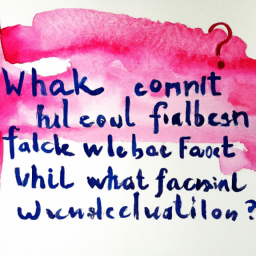 ?
Whak comnt
hil eoul fialbesn
falck wlebac Faet
Whil what facsnial
wunsdecluatilon?